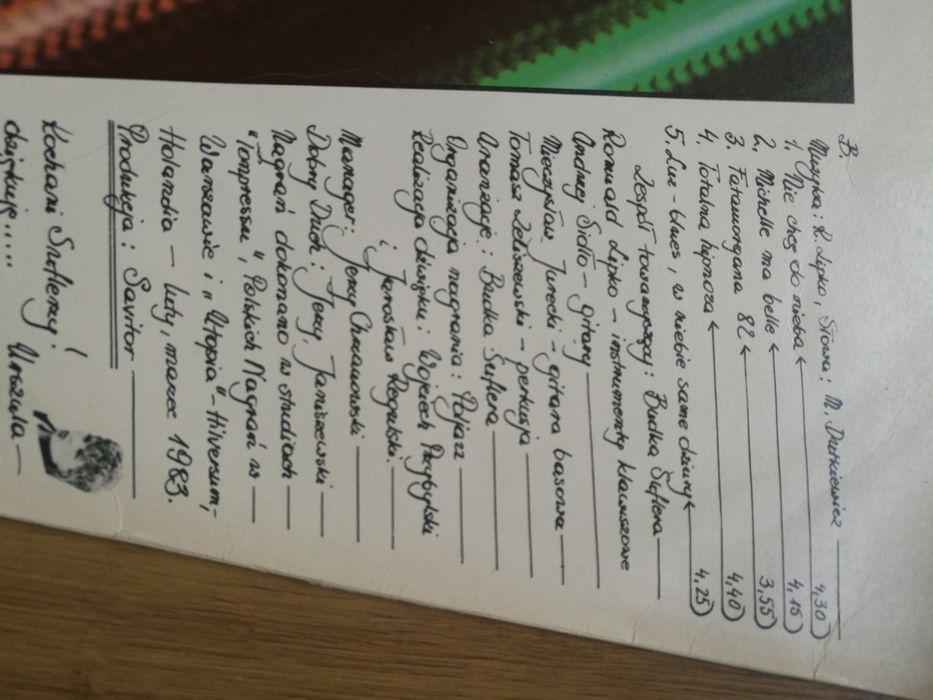 B.
Muzyka: R. Lipko, Słowa: M. Dutkiewicz
1. Nie chcę do nieba 4,30
2. Michelle ma belle 4,15
3. Fatamorgana 82 3,55
4. Totalna hipnoza 4,40
5. Luz-blues, w niebie same dziury 4,25
Zespół towarzyszy: Budka Suflera
Romuald Lipko - instrumenty klawiszowe
Andrzej Sidło - gitary
Mieczysław Jurecki - gitara basowa
Tomasz Zeliszewski - perkusja
Aranżacje: Budka Suflera
Organizacja nagrania: Poljazz
Realizacja dźwięku: Wojciech Przybylski
i Jarosław Regulski.
Manager: Jerzy Chmanowski
Dobry Duch: Jerzy Janiszewski
Nagrań dokonano w studiach
"Tonpressu", Polskich Nagrań w
Warszawie i „Utopia" Hilversum,
Holandia - luty, marzec 1983.
Produkcja: Savitor
Kochani Suflerzy!
dziękuję.....
Urszula